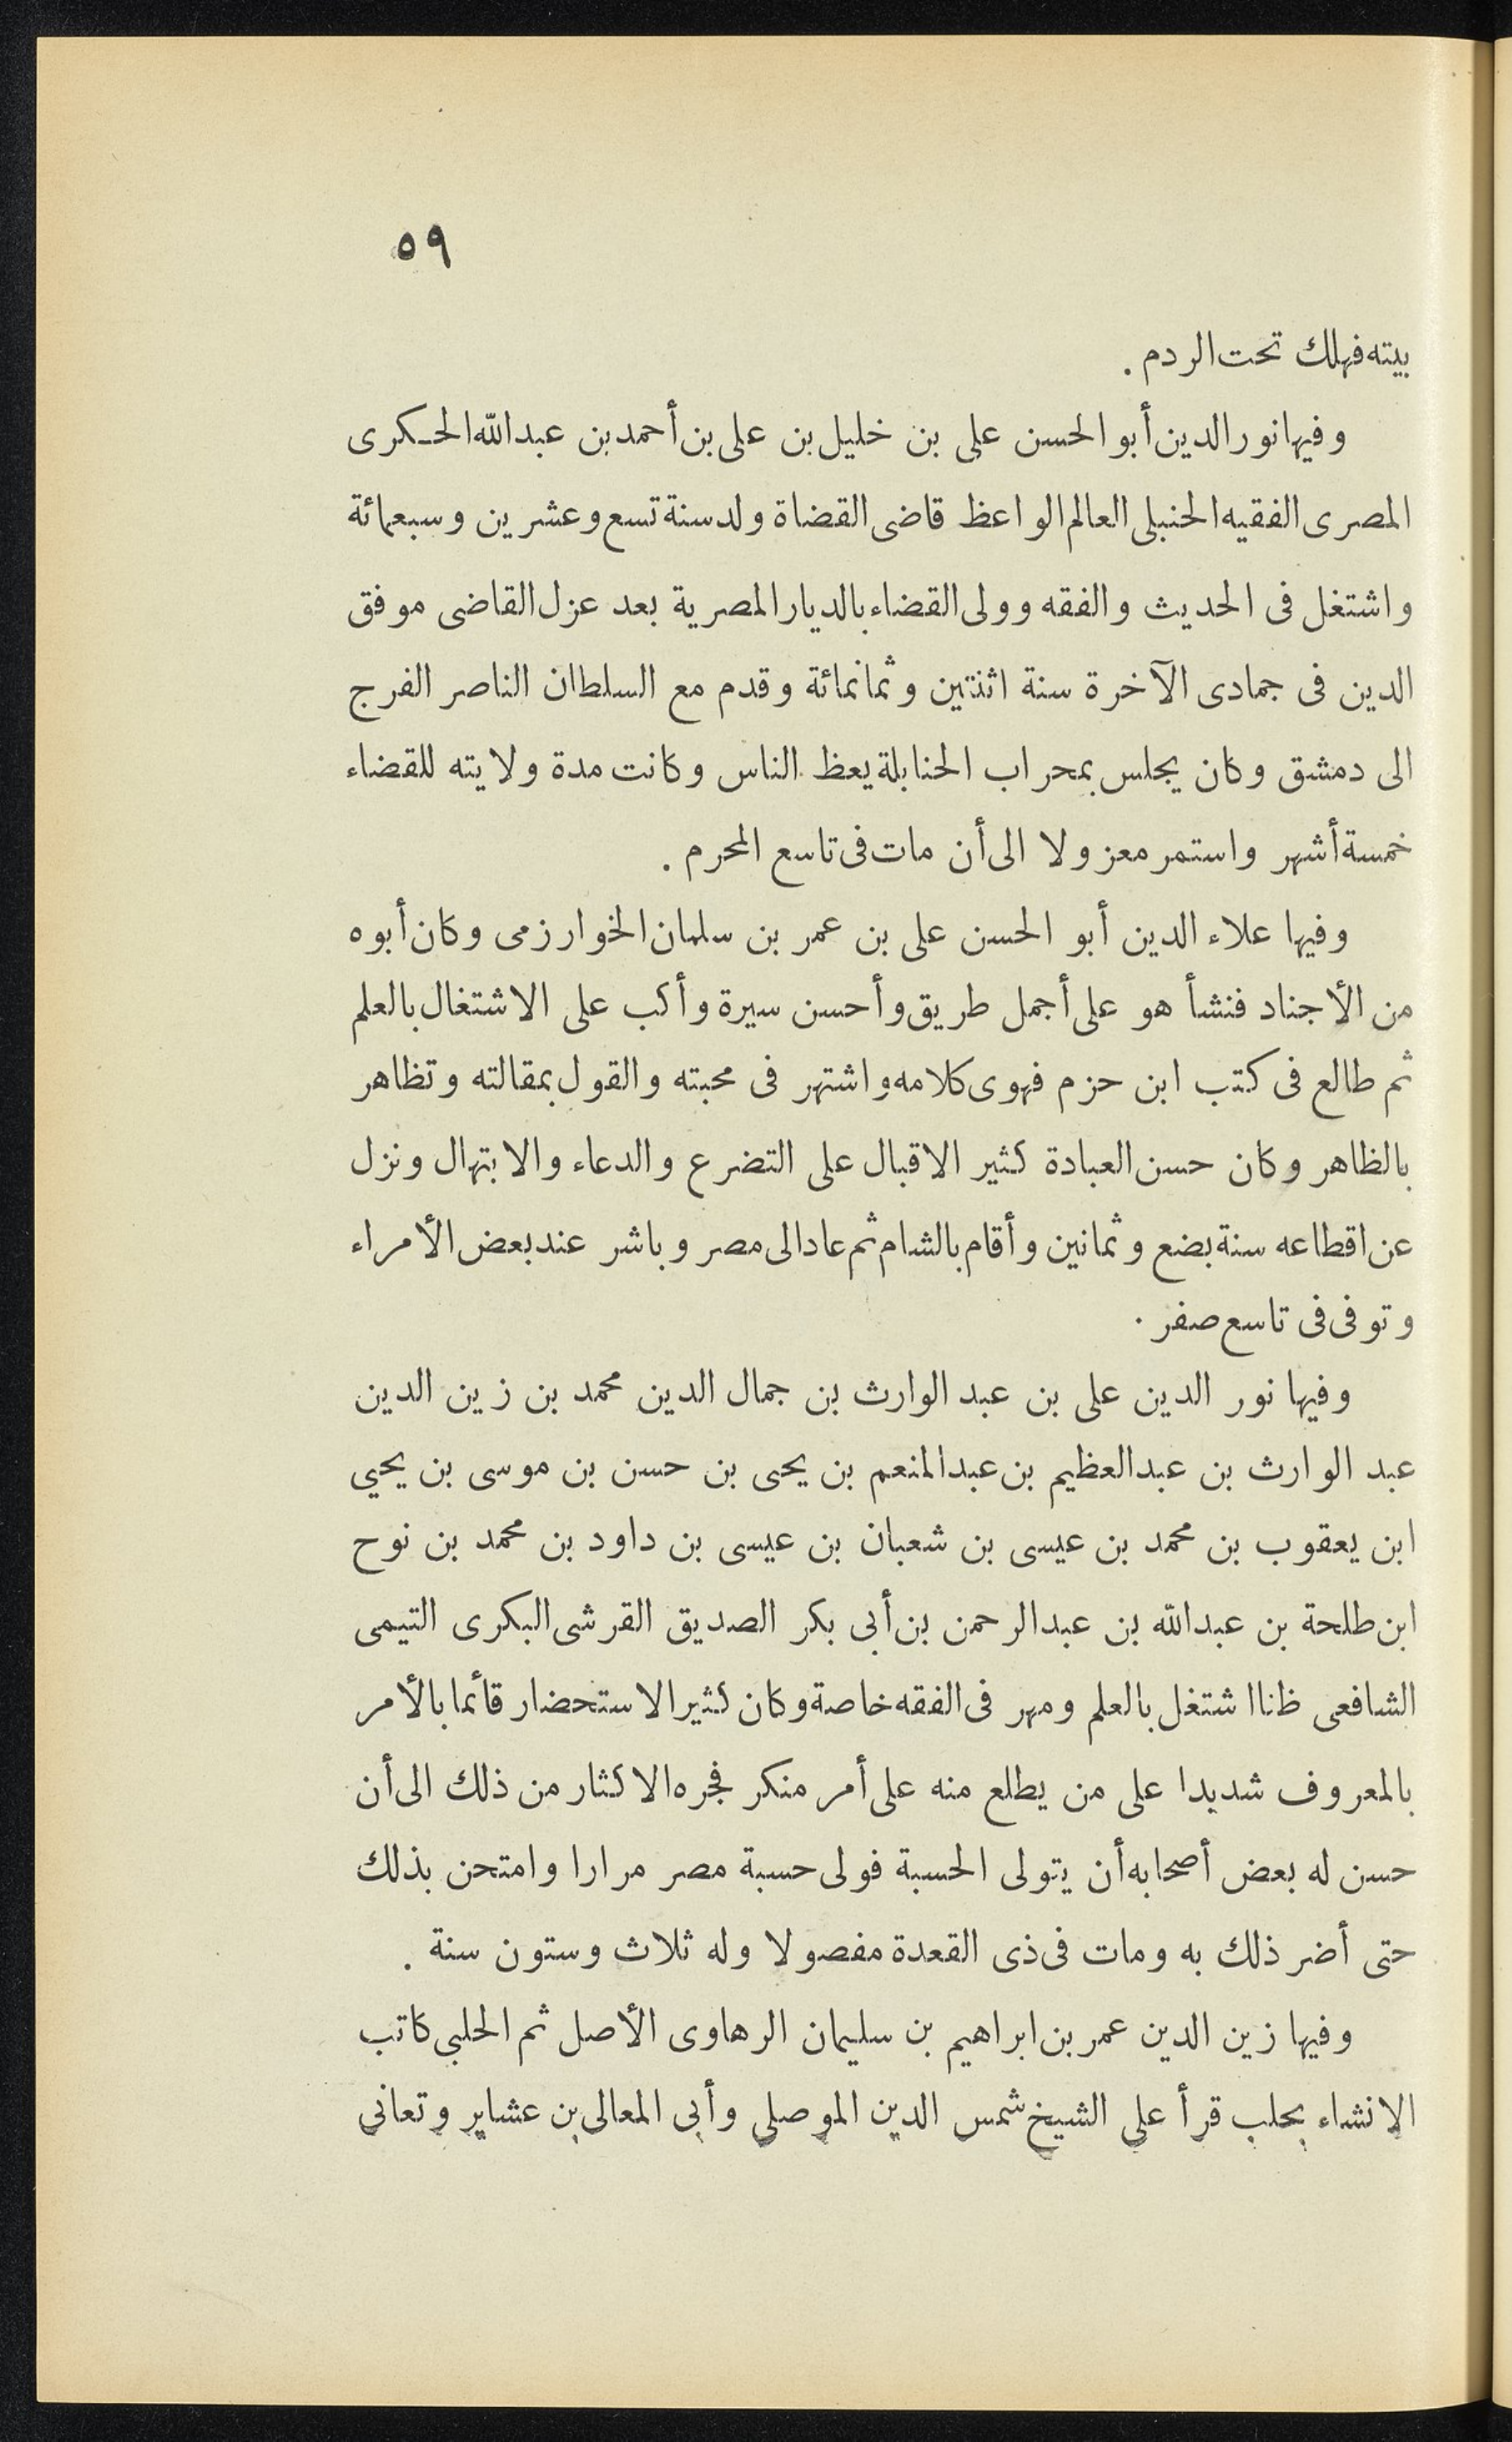 ٥٩
بيته فهلك تحت الردم .
وفيها نور الدين أبو الحسن على بن خليل بن على بن أحمد بن عبد الله الحكرى
المصرى الفقيه الحنبلى العالم الواعظ قاضى القضاة ولد سنة تسع وعشرين وسبعمائة
واشتغل فى الحديث والفقه وولى القضاء بالديار المصرية بعد عزل القاضى موفق
الدين فى جمادى الآخرة سنة اثنتين وثمانمائة وقدم مع السلطان الناصر الفرج
الى دمشق وكان يجلس بمحراب الحنابلة يعظ الناس وكانت مدة ولايته للقضاء
خمسة أشهر واستمر معزولا الى أن مات فى تاسع المحرم .
وفيها علاء الدين أبو الحسن على بن عمر بن سلمان الخوارزمى وكان أبوه
من الأجناد فنشأ هو على أجمل طريق وأحسن سيرة وأكب على الاشتغال بالعلم
ثم طالع فى كتب ابن حزم فهوى كلامه واشتهر فى محبته والقول بمقالته وتظاهر
بالظاهر وكان حسن العبادة كثير الاقبال على التضرع والدعاء والابتهال ونزل
عن اقطاعه سنة بضع وثمانين وأقام بالشام ثم عاد الى مصر وباشر عند بعض الأمراء
وتوفى فى تاسع صفر .
وفيها نور الدين على بن عبد الوارث بن جمال الدين محمد بن زين الدين
عبد الوارث بن عبد العظيم بن عبد المنعم بن يحيى بن حسن بن موسى بن يحيي
ابن يعقوب بن محمد بن عيسى بن شعبان بن عيسى بن داود بن محمد بن نوح
ابن طلحة بن عبد الله بن عبد الرحمن بن أبى بكر الصديق القرشى البكرى التيمى
الشافعى ظنا اشتغل بالعلم ومهر فى الفقه خاصة وكان كثير الاستحضار قأئما بالأمر
بالمعروف شديدا على من يطلع منه على أمر منكر فجره الاكثار من ذلك الى أن
حسن له بعض أصحابه أن يتولى الحسبة فولى حسبة مصر مرارا وامتحن بذلك
حتى أضر ذلك به ومات فى ذى القعدة مفصولا وله ثلاث وستون سنة .
وفيها زين الدين عمر بن ابراهيم بن سليمان الرهاوى الأصل ثم الحلبى كاتب
الانشاء بحلب قرأ على الشيخ شمس الدين الموصلى وأبى المعالى بن عشاير وتعانى